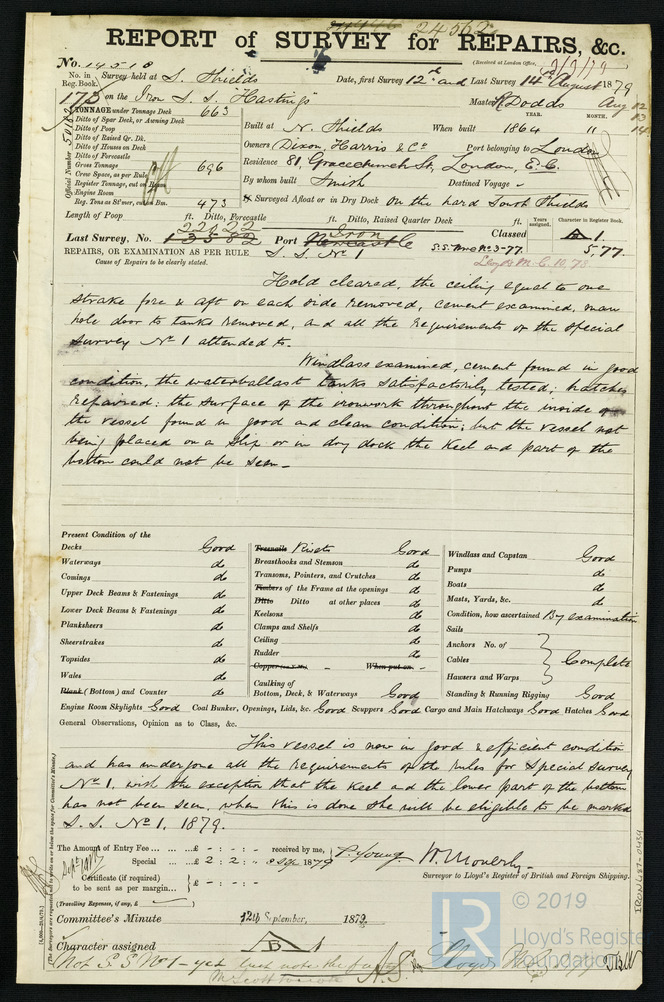 24562
REPORT of SURVEY for REPAIRS, &c.
(Received at London Office,
No. 14518
No. in Reg. Book. Survey held at S. Shields Date, first Survey 12th and Last Survey 14th August 1879
173 on the Iron S.S. "Hastings" Master R Dodds Aug 12
YEAR. MONTH. 13
TONNAGE under Tonnage Deck 663
Built at N. Shields When built 1864 " 14
Ditto of Spar Deck, or Awning Deck
Ditto of Poop
Ditto of Raised Qr. Dk.
Owners Dixon, Harris & Co Port belonging to London
Ditto of Houses on Deck
Ditto of Forecastle
Residence 81, Gracechurch St, London, E.C.
Gross Tonnage 696
Crew Space, as per Rule
By whom built Smish Destined Voyage -
Register Tonnage, cut on Beam
Engine Room
If Surveyed Afloat or in Dry Dock On the hard South Shields
Reg. Tons as St'mer, cut on Bm. 473
Official Number
Length of Poop ft. Ditto, Forecastle ft. Ditto, Raised Quarter Deck ft.
Years assigned. Character in Register Book.
22122 Iron
Last Survey, No. 13582 Port Newcastle Classed A 1.
S.S. Nwc No 3-77 5,77.
REPAIRS, OR EXAMINATION AS PER RULE S.S. No 1
Lloyd's M.C. 10,78
Cause of Repairs to be clearly stated.
Hold cleared, the ceiling equal to one
strake fore & aft on each side removed, cement examined, man
hole door to tanks removed, and all the requirements of the special
survey No 1 attended to.
Windlass examined, cement found in good
condition, the waterballast tanks satisfactorily tested; hatches
repaired: the surface of the ironwork throughout the inside of
the vessel found in good and clean condition; but the vessel not
being placed on a slip or in dry dock the keel and part of the
bottom could not be seen -
Present Condition of the
Decks Good
Waterways do
Comings do
Upper Deck Beams & Fastenings do
Lower Deck Beams & Fastenings do
Planksheers do
Sheerstrakes do
Topsides do
Wales do
Plank (Bottom) and Counter do
Treenails Rivets Good
Breasthooks and Stemson do
Transoms, Pointers, and Crutches do
Timbers of the Frame at the openings do
Ditto Ditto at other places do
Keelsons do
Clamps and Shelfs do
Ceiling do
Rudder do
Copper - When put on -
Caulking of Bottom, Deck, & Waterways Good
Windlass and Capstan Good
Pumps do
Boats do
Masts, Yards, &c. do
Condition, how ascertained By examination
Sails
Anchors No. of
Cables Complete
Hawsers and Warps
Standing & Running Rigging Good
Engine Room Skylights Good Coal Bunker, Openings, Lids, &c. Good Scuppers Good Cargo and Main Hatchways Good Hatches Good
General Observations, Opinion as to Class, &c.
This vessel is now in good & efficient condition
and has undergone all the requirements of the rules for special survey
No 1, with the exception that the keel and the lower part of the bottom
has not been seen, when this is done she will be eligible to be marked
S.S. No 1, 1879.
The Amount of Entry Fee ... £ - : - : - received by me,
Special ... £ 2 : 2 : - 1879 P. Young W. Mouerly
Surveyor to Lloyd's Register of British and Foreign Shipping.
Certificate (if required) to be sent as per margin... £ - : - :
(Travelling Expenses, if any, £
Committee's Minute 12th September, 1879.
Character assigned A 1
Not S S No 1 - yet but note the
(The Surveyors are requested not to write on or below the space for Committee's Minute.)
IRON487-0434
LR
© 2019
Lloyd's Register
Foundation